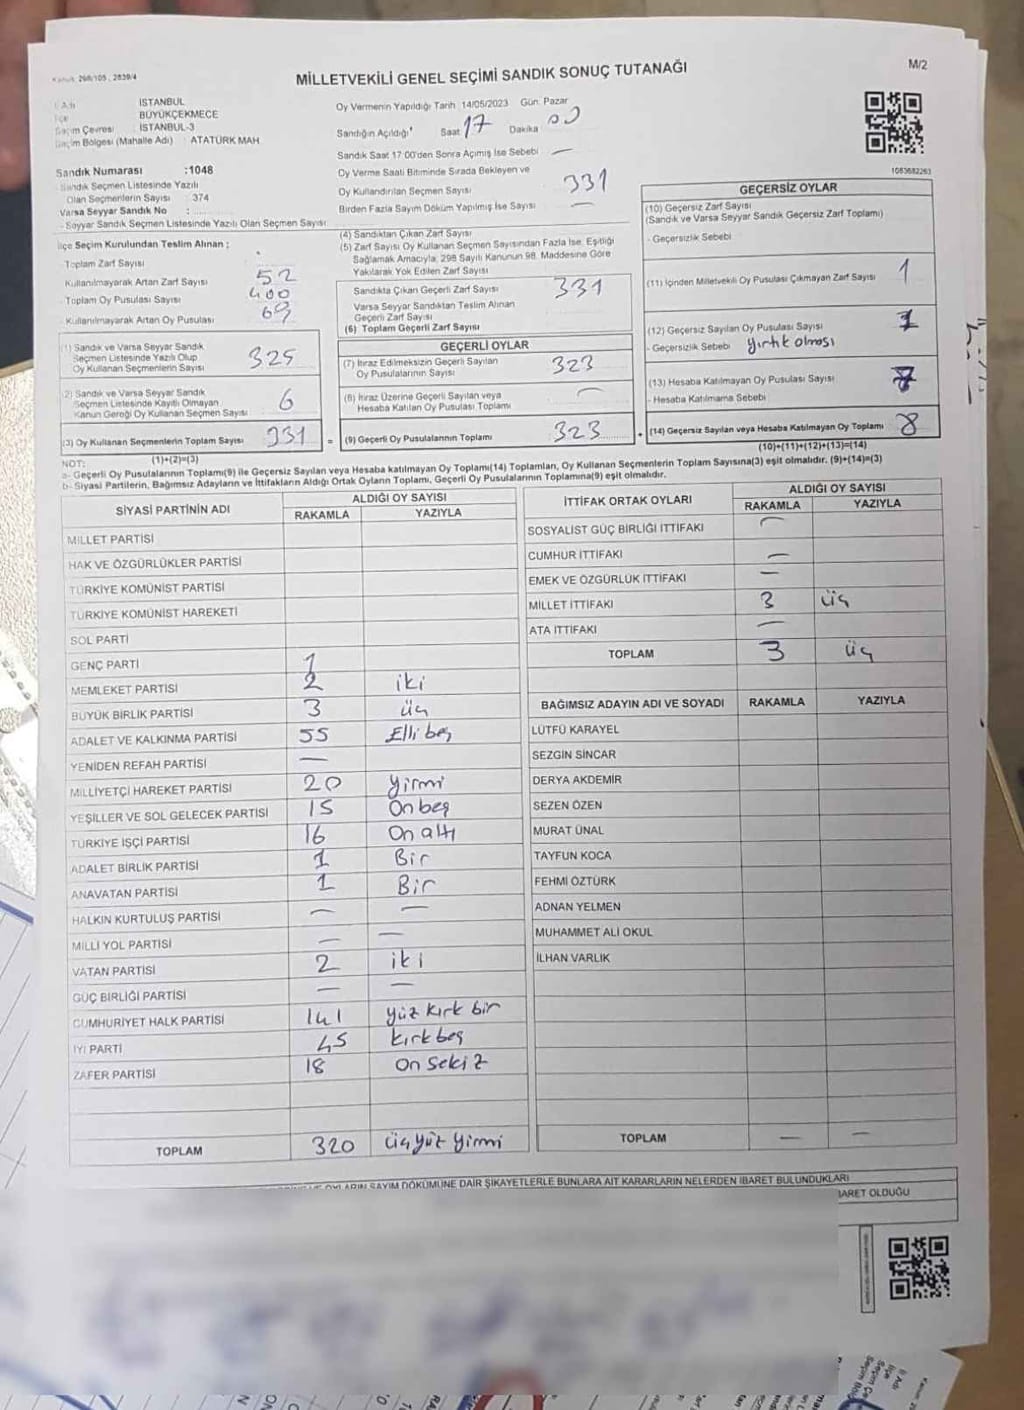 298/105, 2839/4
MİLLETVEKİLİ GENEL SEÇİMİ SANDIK SONUÇ TUTANAĞI
M/2
İl Adı İSTANBUL
İlçe BÜYÜKÇEKMECE
Seçim Çevresi : İSTANBUL-3
Seçim Bölgesi (Mahalle Adı) : ATATÜRK MAH
Oy Vermenin Yapıldığı Tarih 14/05/2023 Gün: Pazar
Sandığın Açıldığı Saat 17 Dakika 00
Sandık Saat 17:00'den Sonra Açımış İse Sebebi —
Oy Verme Saati Bitiminde Sırada Bekleyen ve
Oy Kullandırılan Seçmen Sayısı 331
Birden Fazla Sayım Döküm Yapılmış İse Sayısı —
Sandık Numarası :1048
Sandık Seçmen Listesinde Yazılı
Olan Seçmenlerin Sayısı : 374
Varsa Seyyar Sandık No :
Seyyar Sandık Seçmen Listesinde Yazılı Olan Seçmen Sayısı
İlçe Seçim Kurulundan Teslim Alınan ;
Toplam Zarf Sayısı
Kullanılmayarak Artan Zarf Sayısı 52
Toplam Oy Pusulası Sayısı 400
Kullanılmayarak Artan Oy Pusulası 69
1) Sandık ve Varsa Seyyar Sandık
Seçmen Listesinde Yazılı Olup
Oy Kullanan Seçmenlerin Sayısı 325
2) Sandık ve Varsa Seyyar Sandık
Seçmen Listesinde Kayıtlı Olmayan
Kanun Gereği Oy Kullanan Seçmen Sayısı 6
(3) Oy Kullanan Seçmenlerin Toplam Sayısı 331 =
(1)+(2)=(3)
(4) Sandıktan Çıkan Zarf Sayısı
(5) Zarf Sayısı Oy Kullanan Seçmen Sayısından Fazla İse, Eşitliği
Sağlamak Amacıyla, 298 Sayılı Kanunun 98. Maddesine Göre
Yakılarak Yok Edilen Zarf Sayısı
Sandıkta Çıkan Geçerli Zarf Sayısı 331
Varsa Seyyar Sandıktan Teslim Alınan
Geçerli Zarf Sayısı
(6) Toplam Geçerli Zarf Sayısı
GEÇERLİ OYLAR
(7) İtiraz Edilmeksizin Geçerli Sayılan
Oy Pusulalarının Sayısı 323
(8) İtiraz Üzerine Geçerli Sayılan veya
Hesaba Katılan Oy Pusulası Toplamı —
(9) Geçerli Oy Pusulalarının Toplamı 323 +
1083682263
GEÇERSİZ OYLAR
(10) Geçersiz Zarf Sayısı
(Sandık ve Varsa Seyyar Sandık Geçersiz Zarf Toplamı)
- Geçersizlik Sebebi
(11) İçinden Milletvekili Oy Pusulası Çıkmayan Zarf Sayısı 1
(12) Geçersiz Sayılan Oy Pusulası Sayısı
- Geçersizlik Sebebi yırtık olması
(13) Hesaba Katılmayan Oy Pusulası Sayısı
- Hesaba Katılmama Sebebi
(14) Geçersiz Sayılan veya Hesaba Katılmayan Oy Toplamı 8
(10)+(11)+(12)+(13)=(14)
NOT:
a- Geçerli Oy Pusulalarının Toplamı(9) ile Geçersiz Sayılan veya Hesaba katılmayan Oy Toplamı(14) Toplamları, Oy Kullanan Seçmenlerin Toplam Sayısına(3) eşit olmalıdır. (9)+(14)=(3)
b- Siyasi Partilerin, Bağımsız Adayların ve İttifakların Aldığı Ortak Oyların Toplamı, Geçerli Oy Pusulalarının Toplamına(9) eşit olmalıdır.
SİYASİ PARTİNİN ADI ALDIĞI OY SAYISI
RAKAMLA YAZIYLA
MİLLET PARTİSİ
HAK VE ÖZGÜRLÜKLER PARTİSİ
TÜRKİYE KOMÜNİST PARTİSİ
TÜRKİYE KOMÜNİST HAREKETİ
SOL PARTİ
GENÇ PARTİ 1
MEMLEKET PARTİSİ 2 iki
BÜYÜK BİRLİK PARTİSİ 3 üç
ADALET VE KALKINMA PARTİSİ 55 Elli beş
YENİDEN REFAH PARTİSİ —
MİLLİYETÇİ HAREKET PARTİSİ 20 yirmi
YEŞİLLER VE SOL GELECEK PARTİSİ 15 On beş
TÜRKİYE İŞÇİ PARTİSİ 16 On altı
ADALET BİRLİK PARTİSİ 1 Bir
ANAVATAN PARTİSİ 1 Bir
HALKIN KURTULUŞ PARTİSİ — —
MİLLİ YOL PARTİSİ — —
VATAN PARTİSİ 2 iki
GÜÇ BİRLİĞİ PARTİSİ — —
CUMHURİYET HALK PARTİSİ 141 yüz kırk bir
İYİ PARTİ 45 kırk beş
ZAFER PARTİSİ 18 On sekiz
TOPLAM 320 üçyüz yirmi
İTTİFAK ORTAK OYLARI ALDIĞI OY SAYISI
RAKAMLA YAZIYLA
SOSYALİST GÜÇ BİRLİĞİ İTTİFAKI —
CUMHUR İTTİFAKI —
EMEK VE ÖZGÜRLÜK İTTİFAKI —
MİLLET İTTİFAKI 3 üç
ATA İTTİFAKI —
TOPLAM 3 üç
BAĞIMSIZ ADAYIN ADI VE SOYADI RAKAMLA YAZIYLA
LÜTFÜ KARAYEL
SEZGİN SİNCAR
DERYA AKDEMİR
SEZEN ÖZEN
MURAT ÜNAL
TAYFUN KOCA
FEHMİ ÖZTÜRK
ADNAN YELMEN
MUHAMMET ALİ OKUL
İLHAN VARLIK
TOPLAM — —
OYLARIN SAYIM DÖKÜMÜNE DAİR ŞİKAYETLERLE BUNLARA AİT KARARLARIN NELERDEN İBARET BULUNDUKLARI
İBARET OLDUĞU